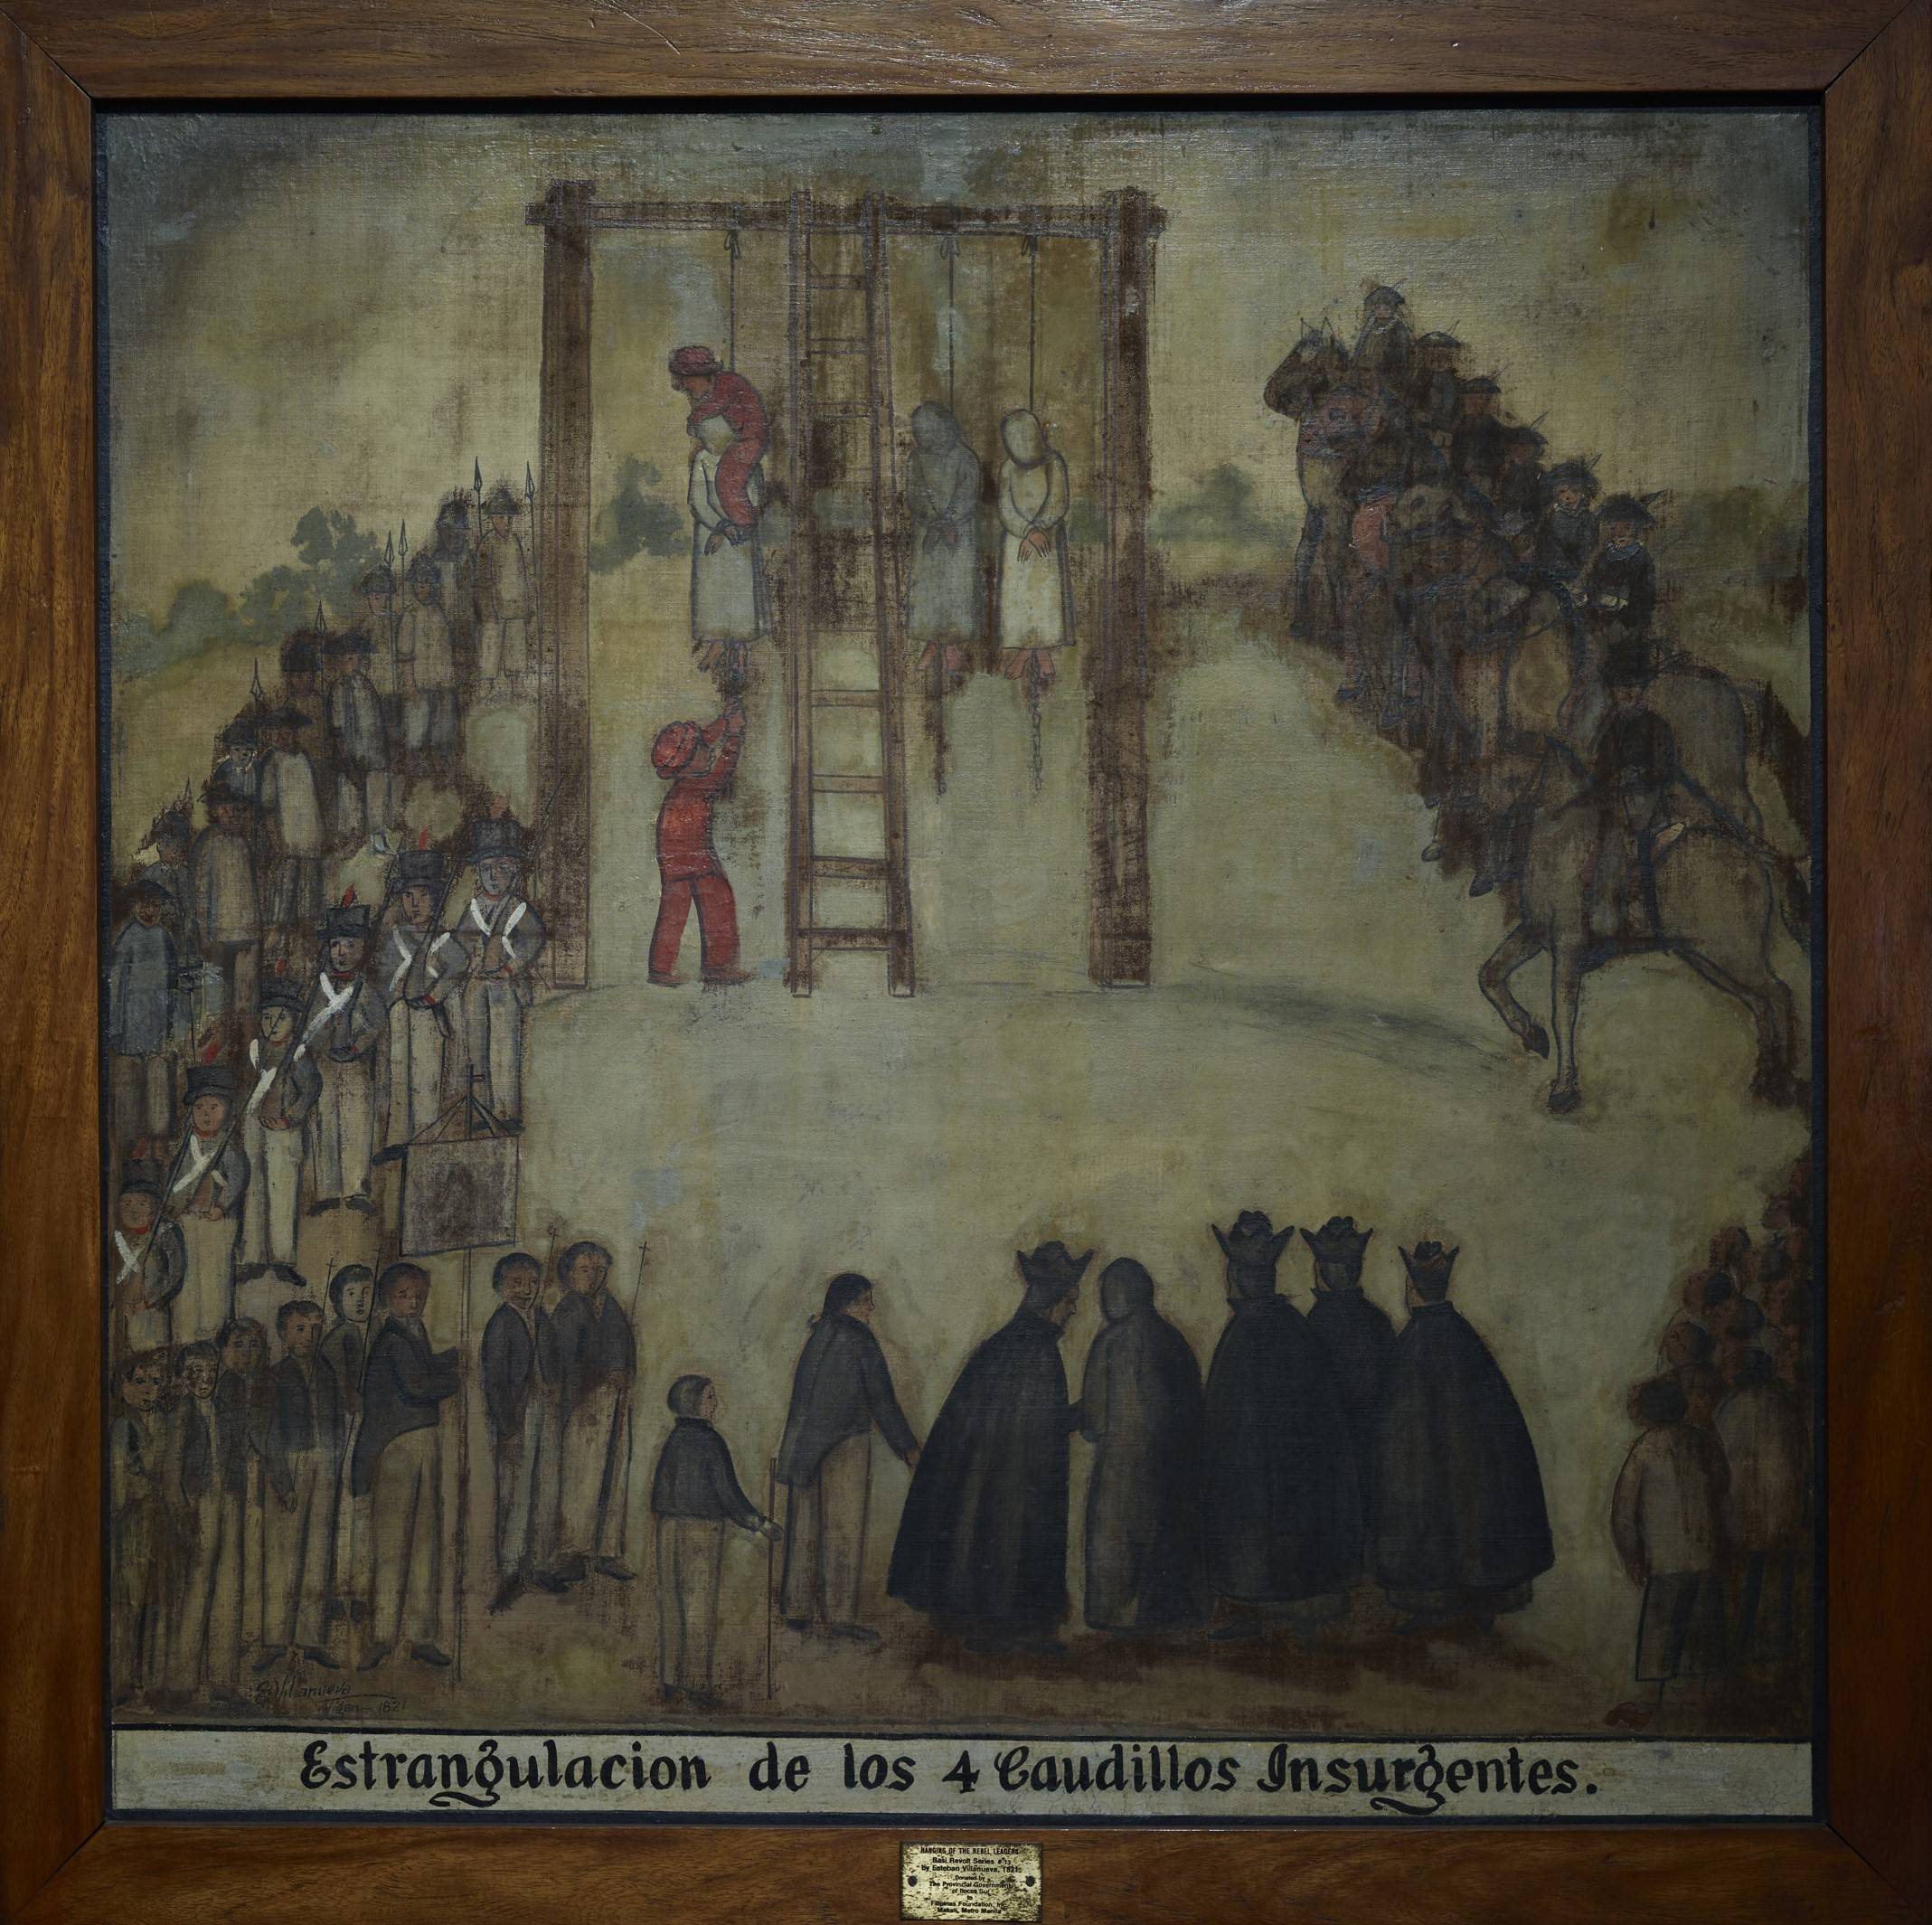 E. Villanueva
Vigan 1821
Estrangulacion de los 4 Caudillos Insurgentes.
HANGING OF THE REBEL LEADERS
Basi Revolt Series # 13
By Esteban Villanueva, 1821
Donated by
The Provincial Government
of Ilocos Sur
to
Filipinas Foundation, Inc.
Makati, Metro Manila